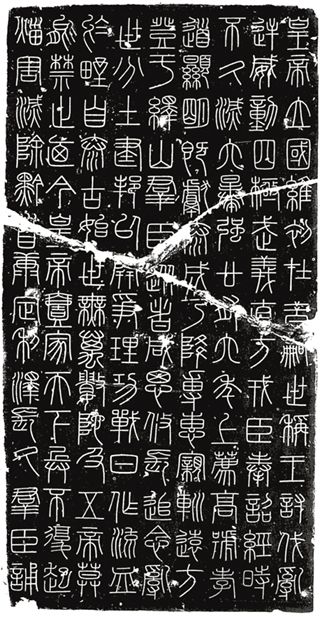 皇帝立國維初在昔嗣世稱王討伐亂
逆威動四極武義直方戎臣奉詔經時
不久滅六暴強廿有六年上薦高號孝
道顯明既獻泰成乃降專惠寴巡遠方
登于繹山羣臣從者咸思攸長追念亂
世分土建邦以開爭理功戰日作流血
於野自泰古始世無萬數陀及五帝莫
能禁止迺今皇帝壹家天下兵不復起
災害滅除黔首康定利澤長久羣臣誦